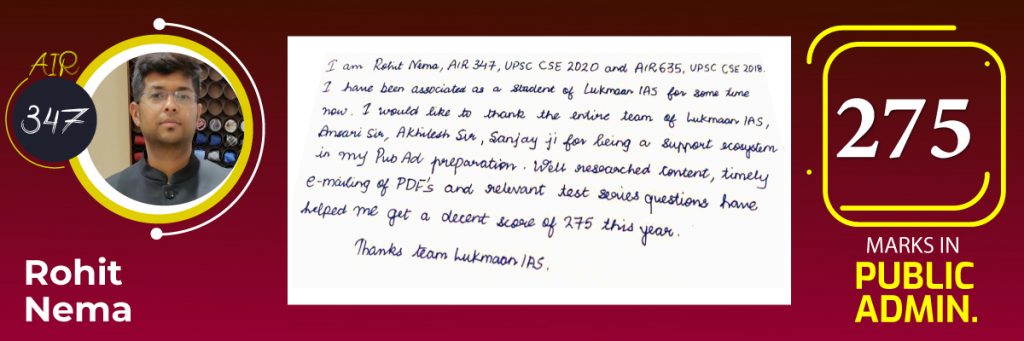 AIR
347
Rohit
Nema
I am Rohit Nema, AIR 347, UPSC CSE 2020 and AIR 635, UPSC CSE 2018.
I have been associated as a student of Lukmaan IAS for some time
now. I would like to thank the entire team of Lukmaan IAS,
Ansari Sir, Akhilesh Sir, Sanjay ji for being a support ecosystem
in my Pub Ad preparation. Well researched content, timely
e-mailing of PDF's and relevant test series questions have
helped me get a decent score of 275 this year.
Thanks team Lukmaan IAS.
275
MARKS IN
PUBLIC
ADMIN.